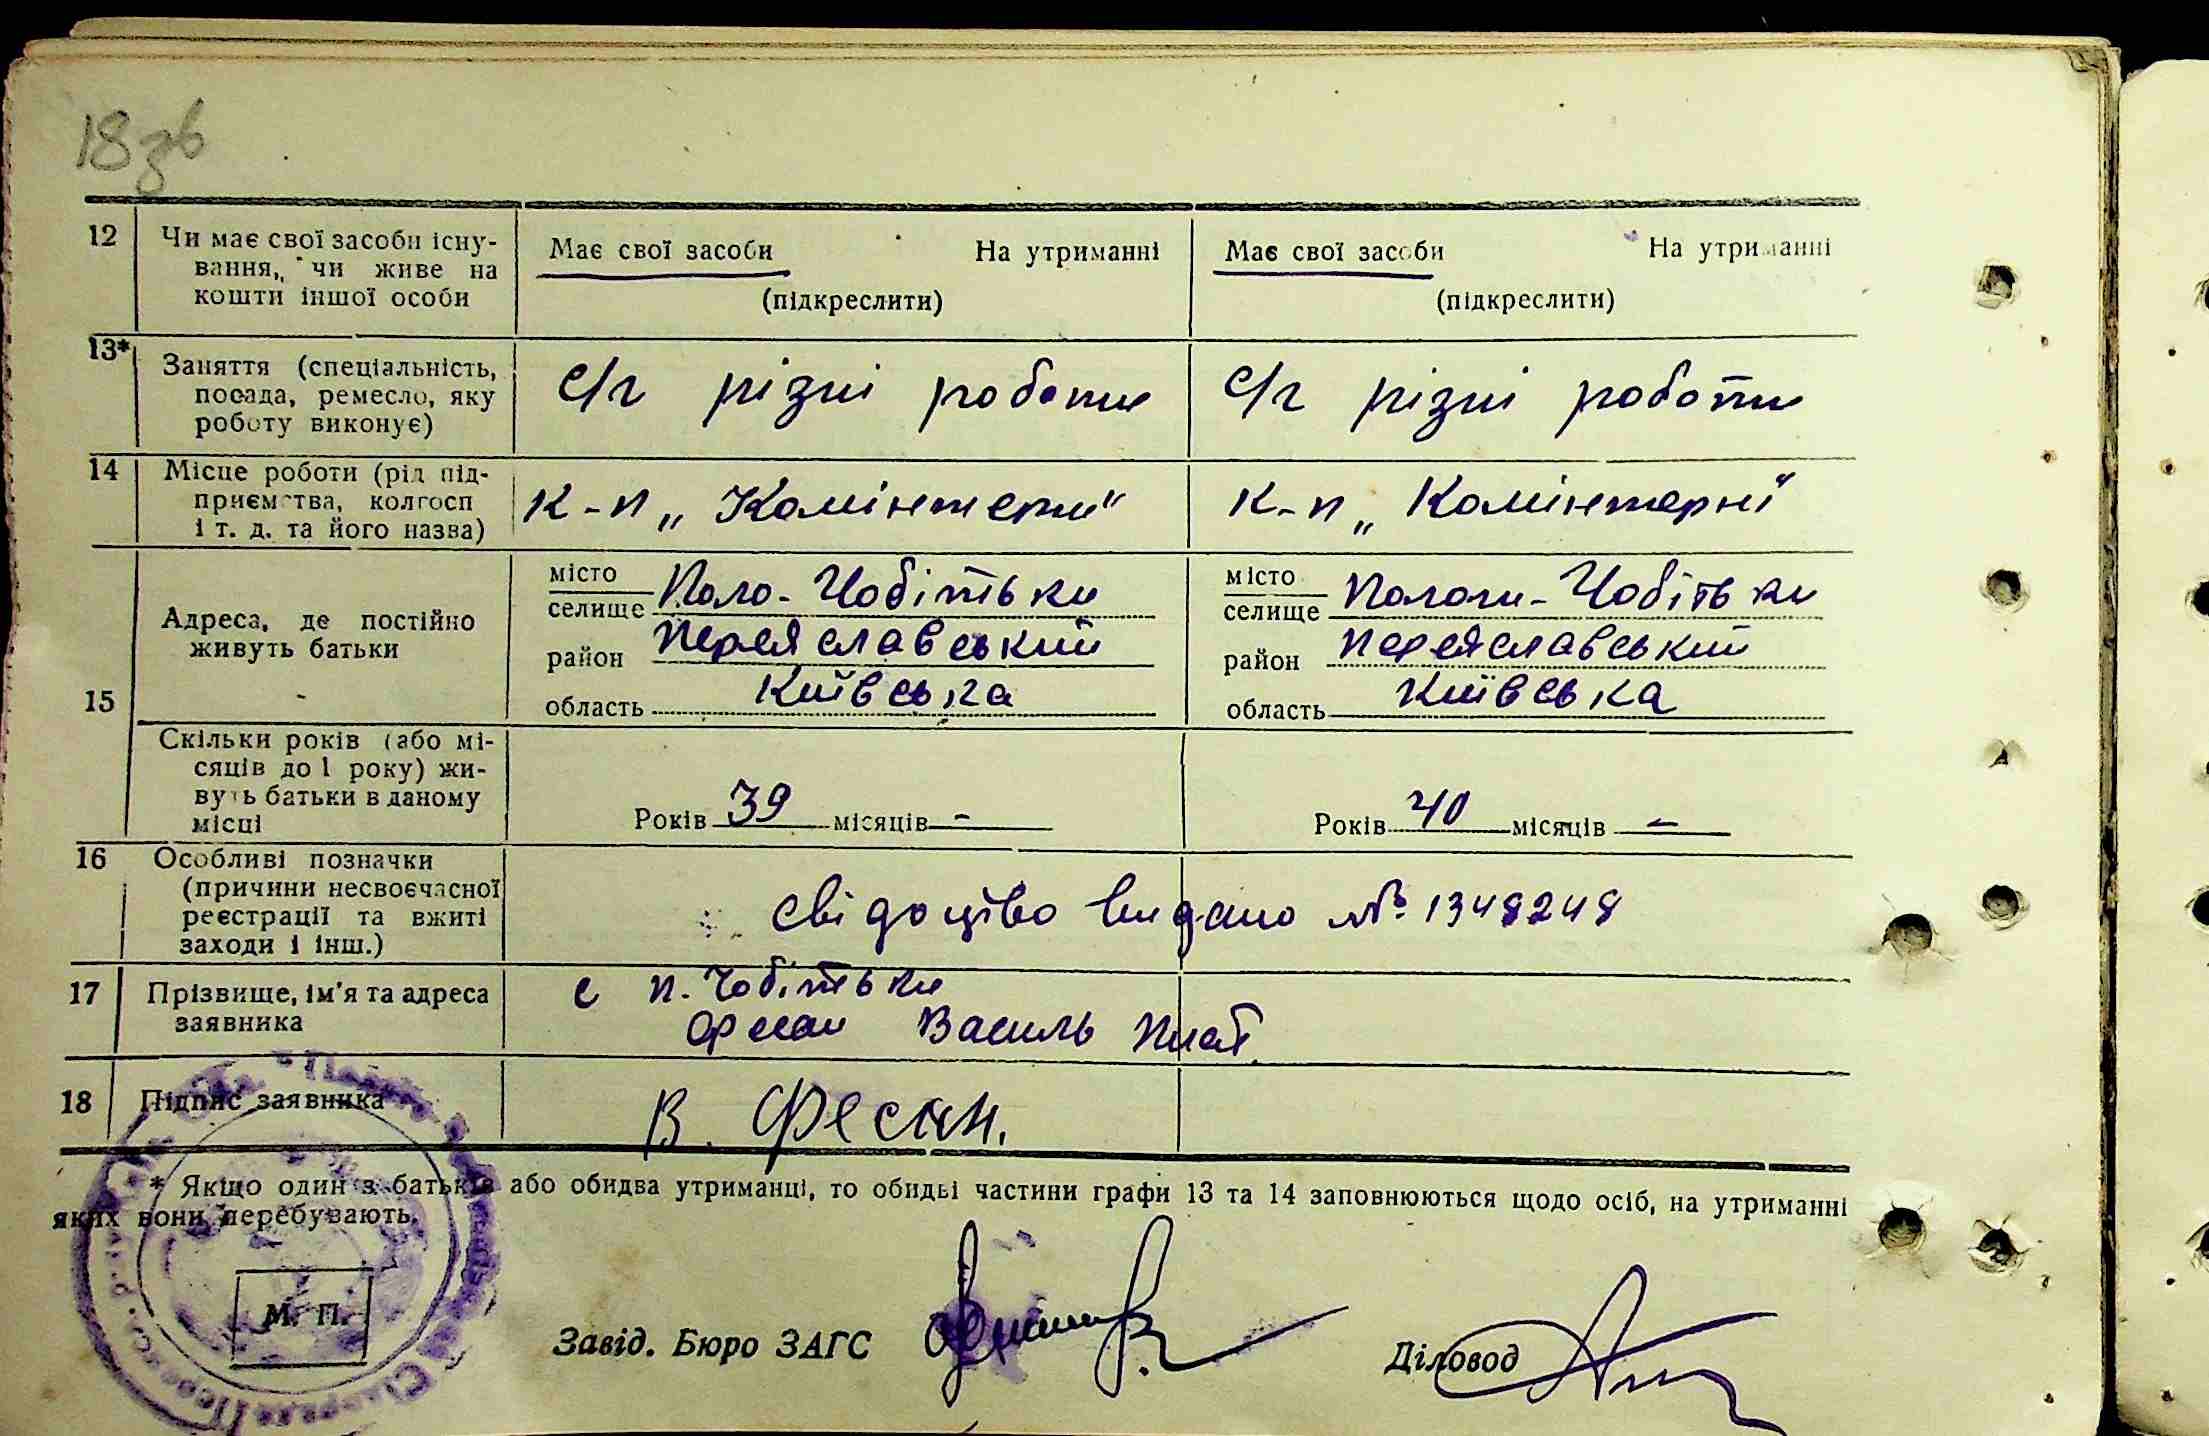 18зв
12 Чи має свої засоби існу-
вання, чи живе на
кошти іншої особи
Має свої засоби На утриманні
(підкреслити)
Має свої засоби На утриманні
(підкреслити)
13* Заняття (спеціальність,
посада, ремесло, яку
роботу виконує)
с/г різні роботи
с/г різні роботи
14 Місце роботи (рід під-
приємства, колгосп
і т. д. та його назва)
к-п „Комінтерн"
к-п „Комінтерн"
15
Адреса, де постійно
живуть батьки
місто
селище Поло-Чобітьки
район Переяславський
область Київська
місто
селище Пологи-Чобітьки
район Переяславський
область Київська
Скільки років (або мі-
сяців до 1 року) жи-
вуть батьки в даному
місці
Років 39 місяців -
Років 40 місяців -
16 Особливі позначки
(причини несвоєчасної
реєстрації та вжиті
заходи і інш.)
свідоцтво видано № 1348248
17 Прізвище, ім'я та адреса
заявника
с п. Чобітьки
Фесан Василь
18 Підпис заявника
В. Фесан.
* Якщо один з батьків або обидва утриманці, то обидві частини графи 13 та 14 заповнюються щодо осіб, на утриманні
яких вони перебувають.
М. П.
Завід. Бюро ЗАГС
Діловод